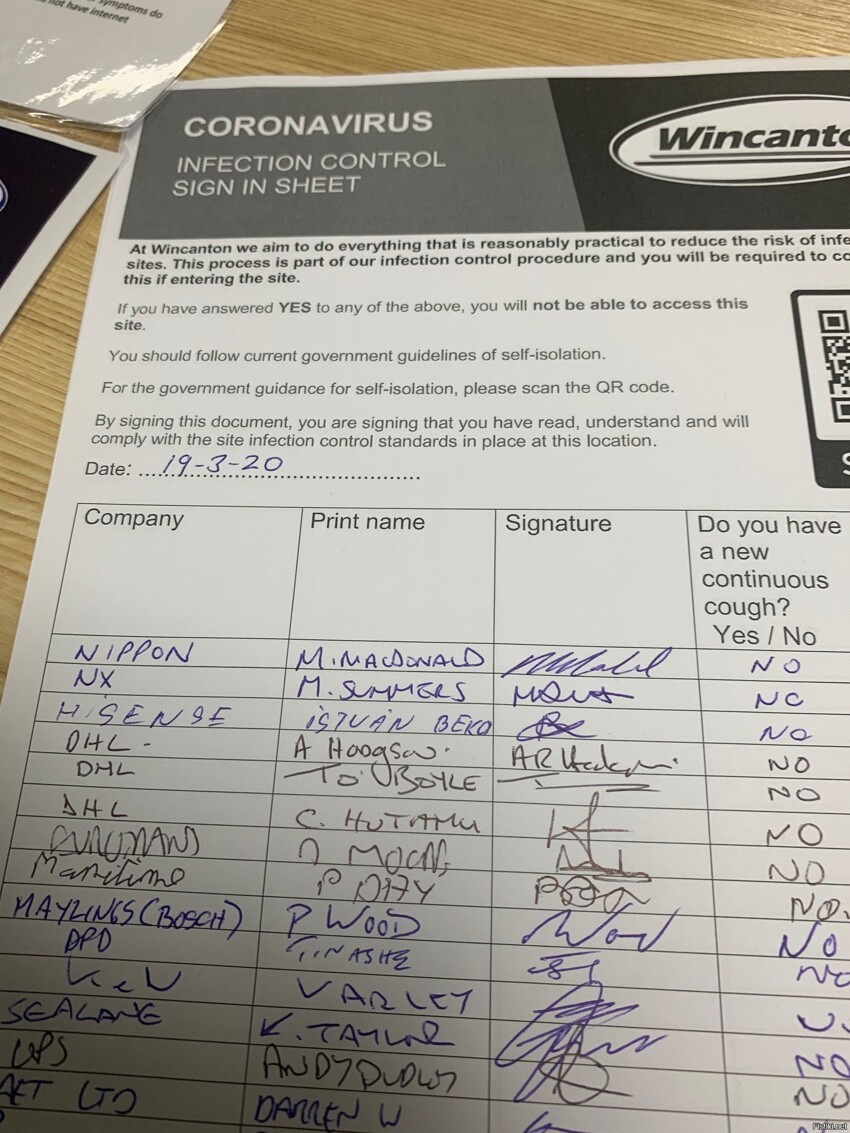 symptoms do
not have internet
CORONAVIRUS
INFECTION CONTROL
SIGN IN SHEET
Wincanto
At Wincanton we aim to do everything that is reasonably practical to reduce the risk of infe
sites. This process is part of our infection control procedure and you will be required to co
this if entering the site.
If you have answered YES to any of the above, you will not be able to access this
site.
You should follow current government guidelines of self-isolation.
For the government guidance for self-isolation, please scan the QR code.
By signing this document, you are signing that you have read, understand and will
comply with the site infection control standards in place at this location.
Date: 19-3-20
S
Company Print name Signature Do you have
a new
continuous
cough?
Yes / No
NIPPON M. MACDONALD NO
NX M. SUMMERS NO
HISENSE ISTVÁN BEKO NO
DHL - A Hodgson NO
DHL NO
DHL C. NO
NO
Maritime P NO.
MAYLINGS (BOSCH) P WOOD NO
DPD TINASHE NO
VARLEY
SEALANE K. TAYLOR NO
UPS ANDY NO
LTD DARREN W